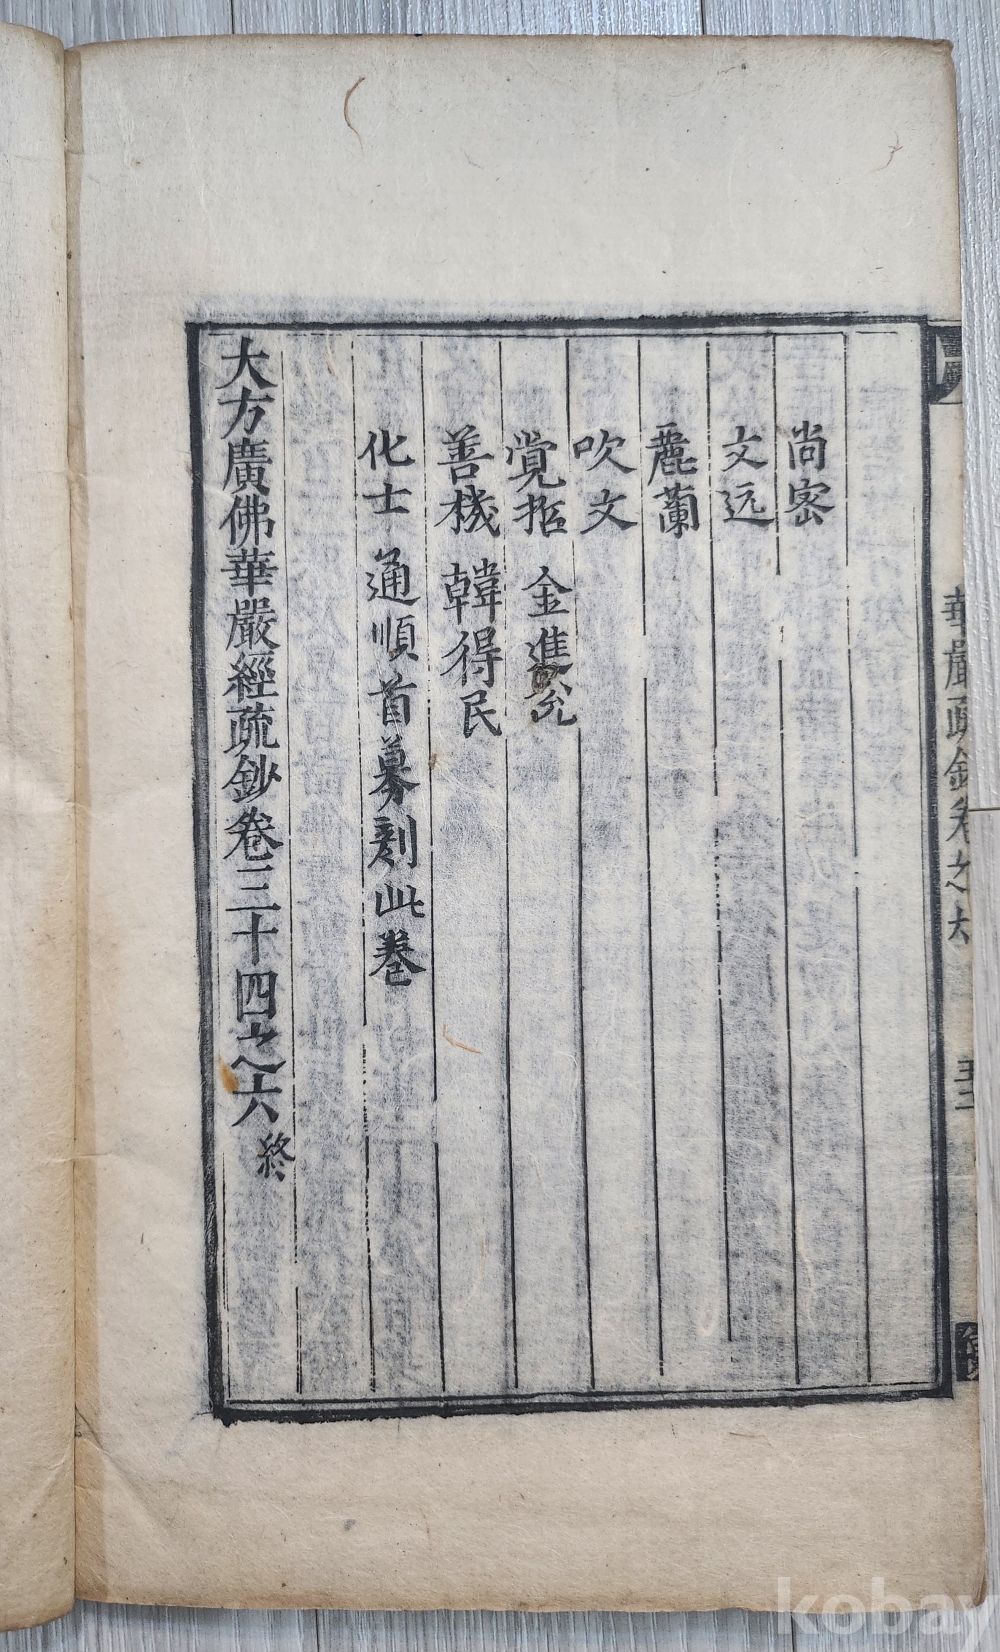 尚密
文远
麗蘭
吹文
覚哲 金進允
善機 韓得民
化士 通順首募刻此卷
大方廣佛華嚴經疏鈔卷三十四之六 終
華嚴疏鈔卷之六
kobay